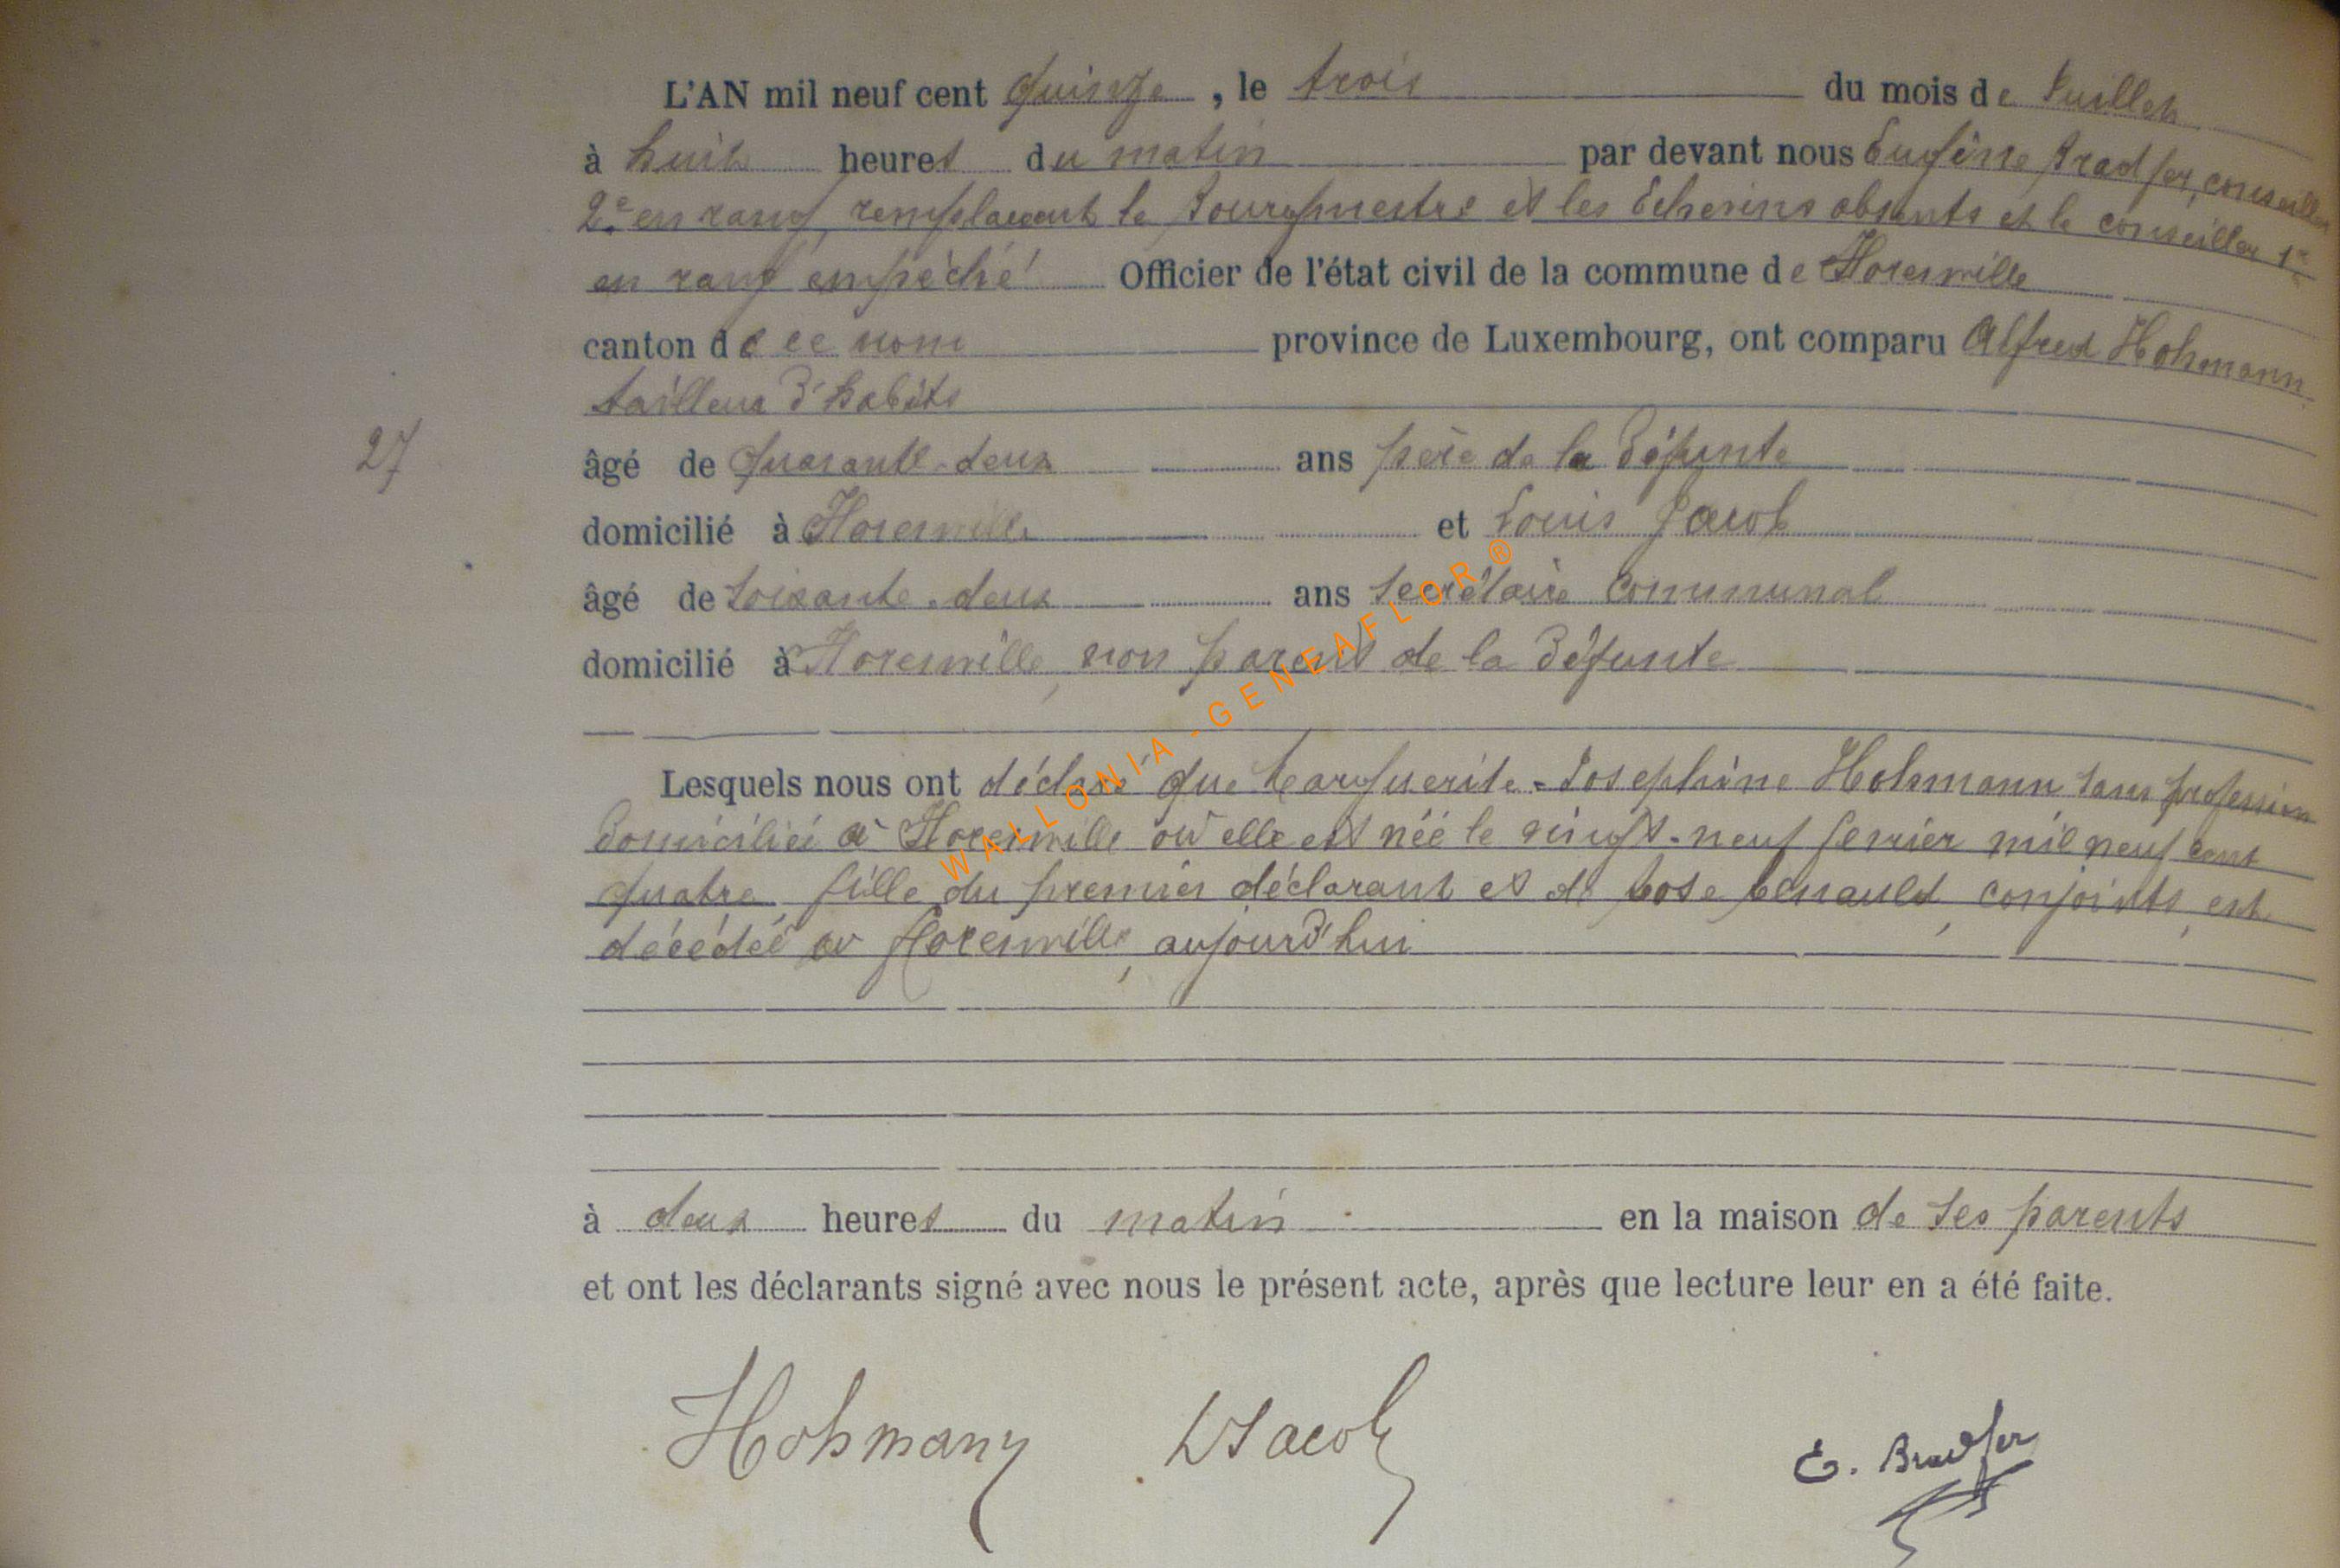 L'AN mil neuf cent quinze, le trois du mois de Juillet
à huit heures du matin par devant nous Eugène Bradfer, conseiller
2e en rang, remplaçant le Bourgmestre et les Echevins absents et le conseiller 1er
en rang empêché Officier de l'état civil de la commune de Florenville
canton de ce nom province de Luxembourg, ont comparu Alfred Hohmann
tailleur d'habits
27
âgé de quarante-deux ans père de la défunte
domicilié à Florenville et Louis Jacob
âgé de soixante-deux ans secrétaire communal
domicilié à Florenville, non parent de la défunte
Lesquels nous ont déclaré que Marguerite-Josephine Hohmann sans profession
domiciliée à Florenville où elle est née le vingt-neuf fevrier mil neuf cent
quatre fille du premier déclarant et de Rose Renauld, conjoints, est
décédée à Florenville, aujourd'hui
à deux heures du matin en la maison de ses parents
et ont les déclarants signé avec nous le présent acte, après que lecture leur en a été faite.
Hohmann LJacob E. Bradfer
WALLONIA-GENEAFLOR®